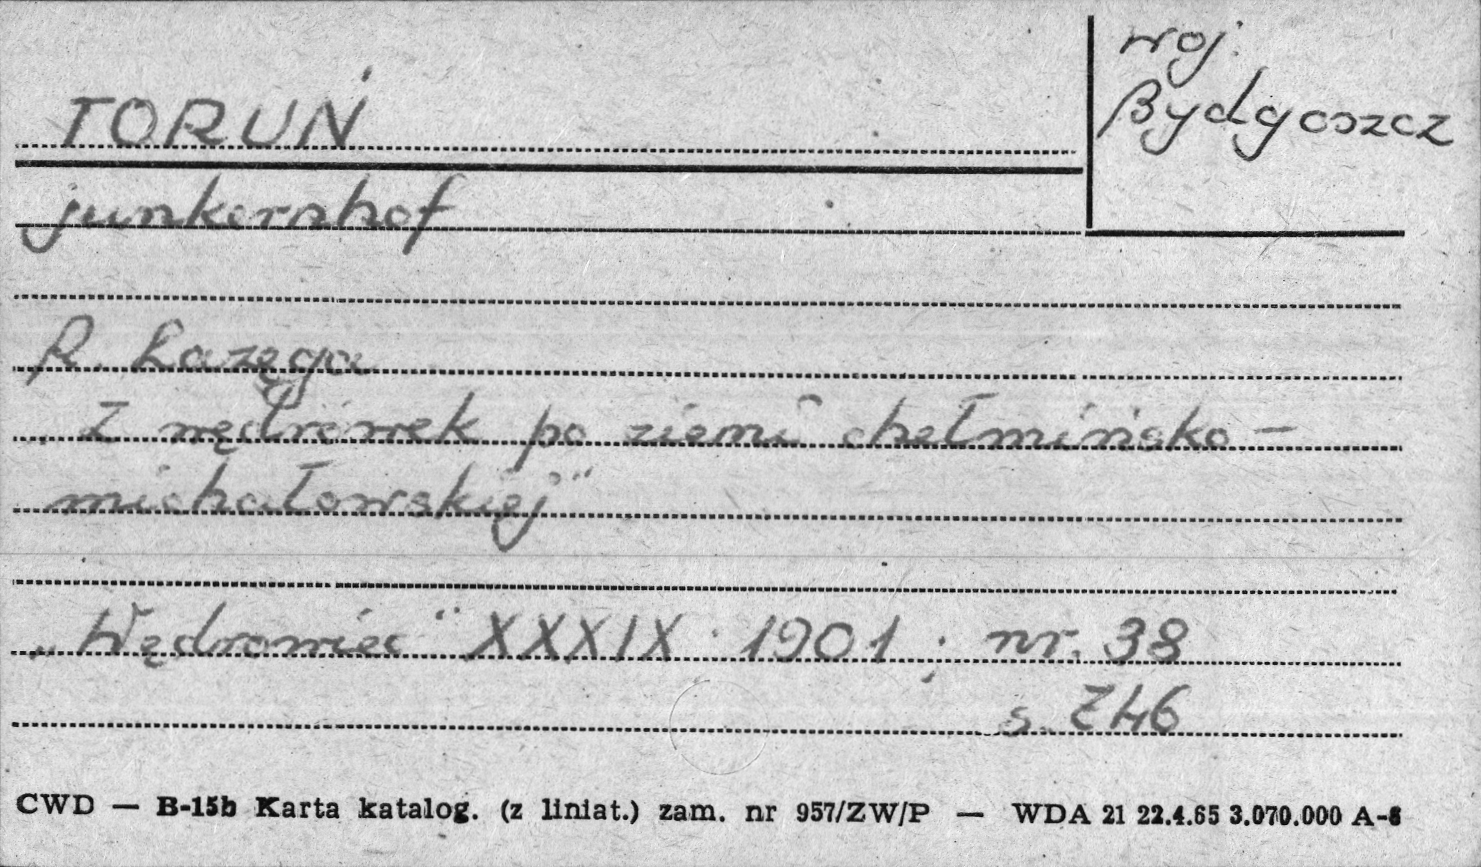 woj.
Bydgoszcz
TORUŃ
junkershof
R. Łazęga
„Z wędrówek po ziemi chełmińsko-
michałowskiej"
„Wędrowiec" XXXIX. 1901; nr. 38
s. 746
CWD — B-15b Karta katalog. (z liniat.) zam. nr 957/ZW/P — WDA 21 22.4.65 3.070.000 A-8